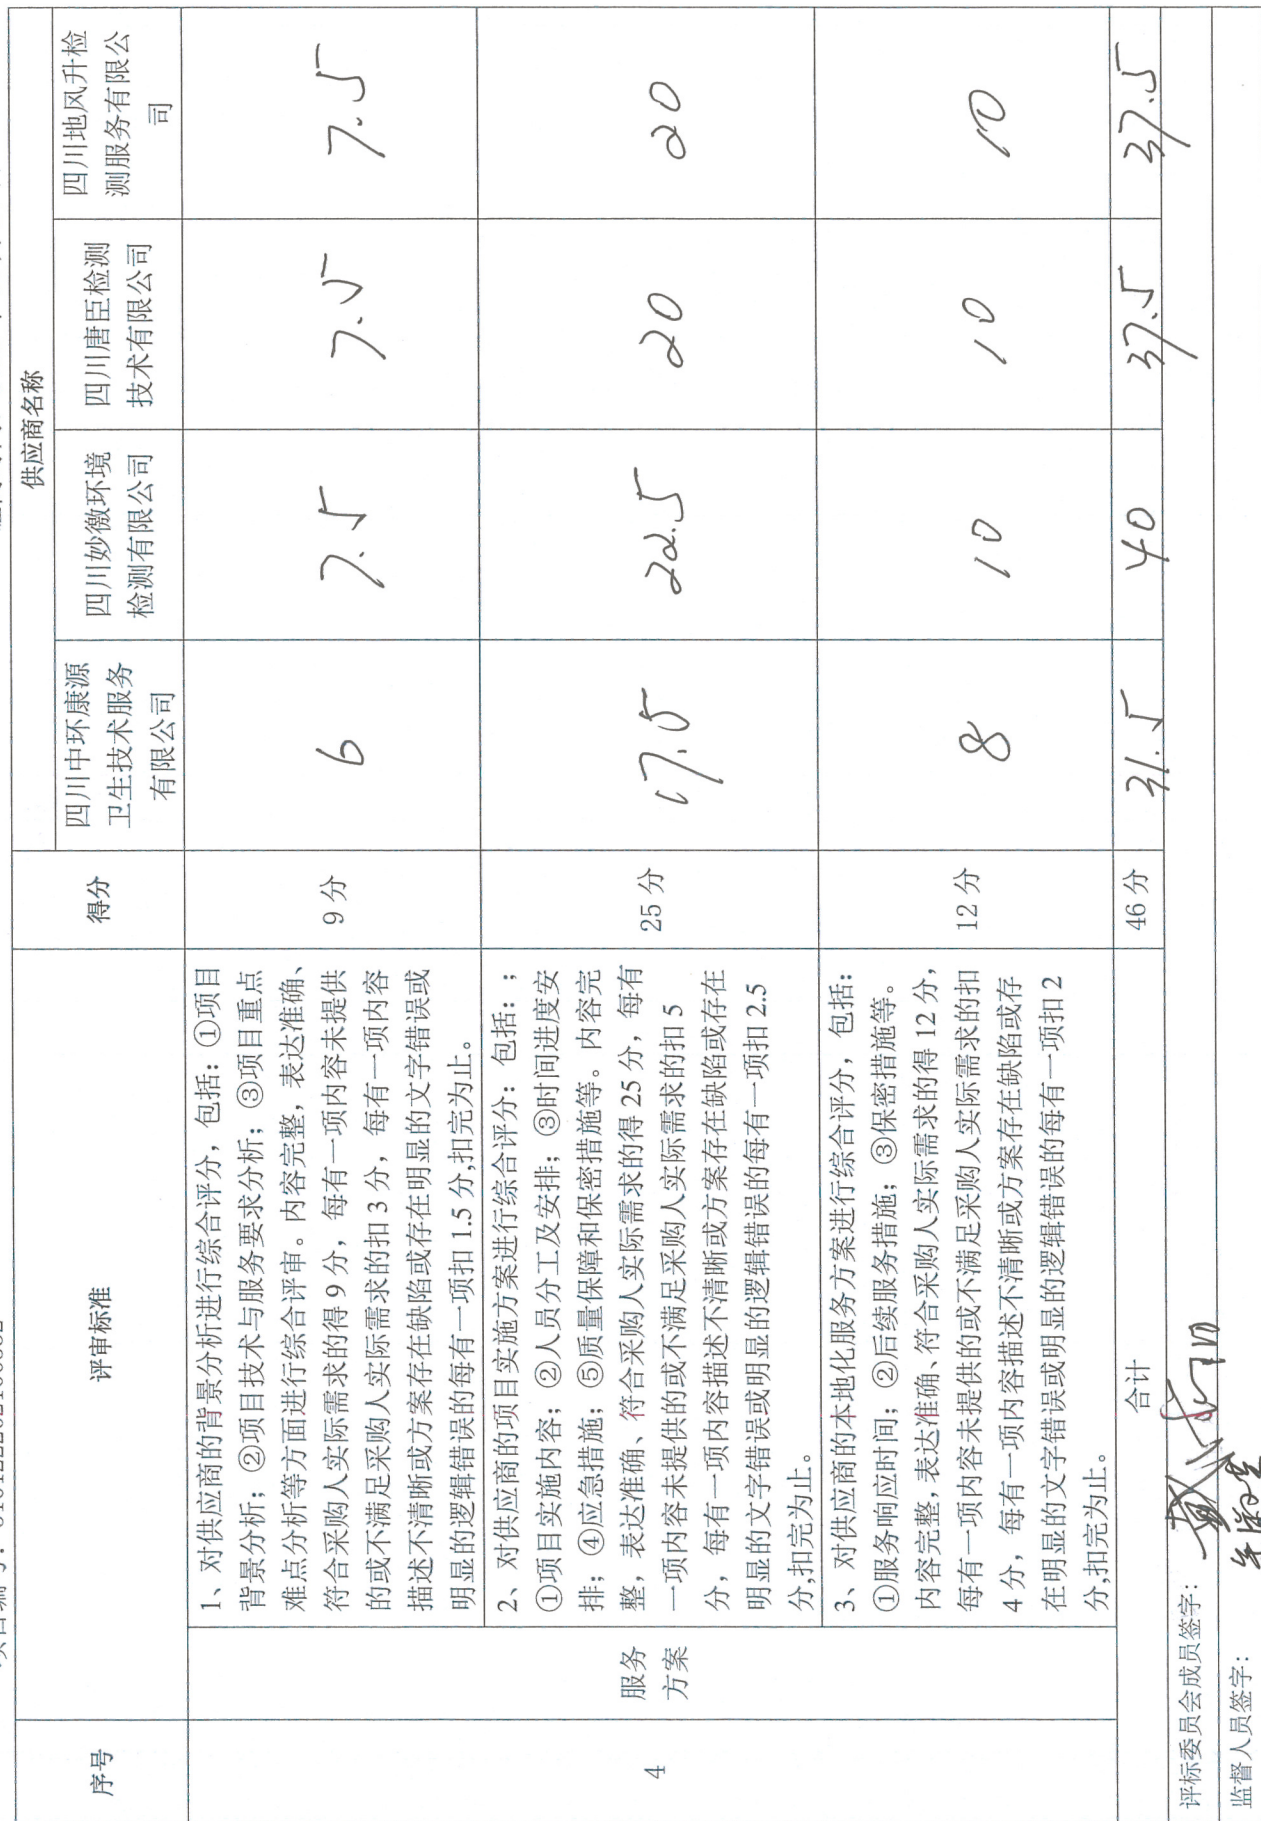 序号
评审标准
得分
供应商名称
四川中环康源
卫生技术服务
有限公司
四川妙微环境
检测有限公司
四川唐臣检测
技术有限公司
四川地风升检
测服务有限公
司
4
服务
方案
1、对供应商的背景分析进行综合评分，包括：①项目
背景分析；②项目技术与服务要求分析；③项目重点
难点分析等方面进行综合评审。内容完整，表达准确、
符合采购人实际需求的得 9 分，每有一项内容未提供
的或不满足采购人实际需求的扣 3 分，每有一项内容
描述不清晰或方案存在缺陷或存在明显的文字错误或
明显的逻辑错误的每有一项扣 1.5 分,扣完为止。
9 分
6
7.5
7.5
7.5
2、对供应商的项目实施方案进行综合评分：包括：；
①项目实施内容；②人员分工及安排；③时间进度安
排；④应急措施；⑤质量保障和保密措施等。内容完
整，表达准确、符合采购人实际需求的得 25 分，每有
一项内容未提供的或不满足采购人实际需求的扣 5
分，每有一项内容描述不清晰或方案存在缺陷或存在
明显的文字错误或明显的逻辑错误的每有一项扣 2.5
分,扣完为止。
25 分
17.5
22.5
20
20
3、对供应商的本地化服务方案进行综合评分，包括：
①服务响应时间；②后续服务措施；③保密措施等。
内容完整，表达准确、符合采购人实际需求的得 12 分，
每有一项内容未提供的或不满足采购人实际需求的扣
4 分，每有一项内容描述不清晰或方案存在缺陷或存
在明显的文字错误或明显的逻辑错误的每有一项扣 2
分,扣完为止。
12 分
8
10
10
10
合计
46 分
31.5
40
37.5
37.5
评标委员会成员签字：
监督人员签字：